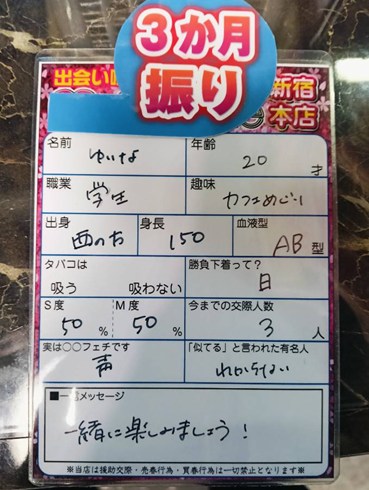 3か月
振り
出会い
新宿
本店
名前 ゆいな 年齢 20 才
職業 学生 趣味 カフェめぐり
出身 西の方 身長 150 血液型 AB 型
タバコは 吸う 吸わない 勝負下着って? 白
S度 50 % M度 50 % 今までの交際人数 3 人
実は○○フェチです 声 「似てる」と言われた有名人 わからない
■一言メッセージ
一緒に楽しみましょう!
※当店は援助交際・売春行為・買春行為は一切禁止となります※